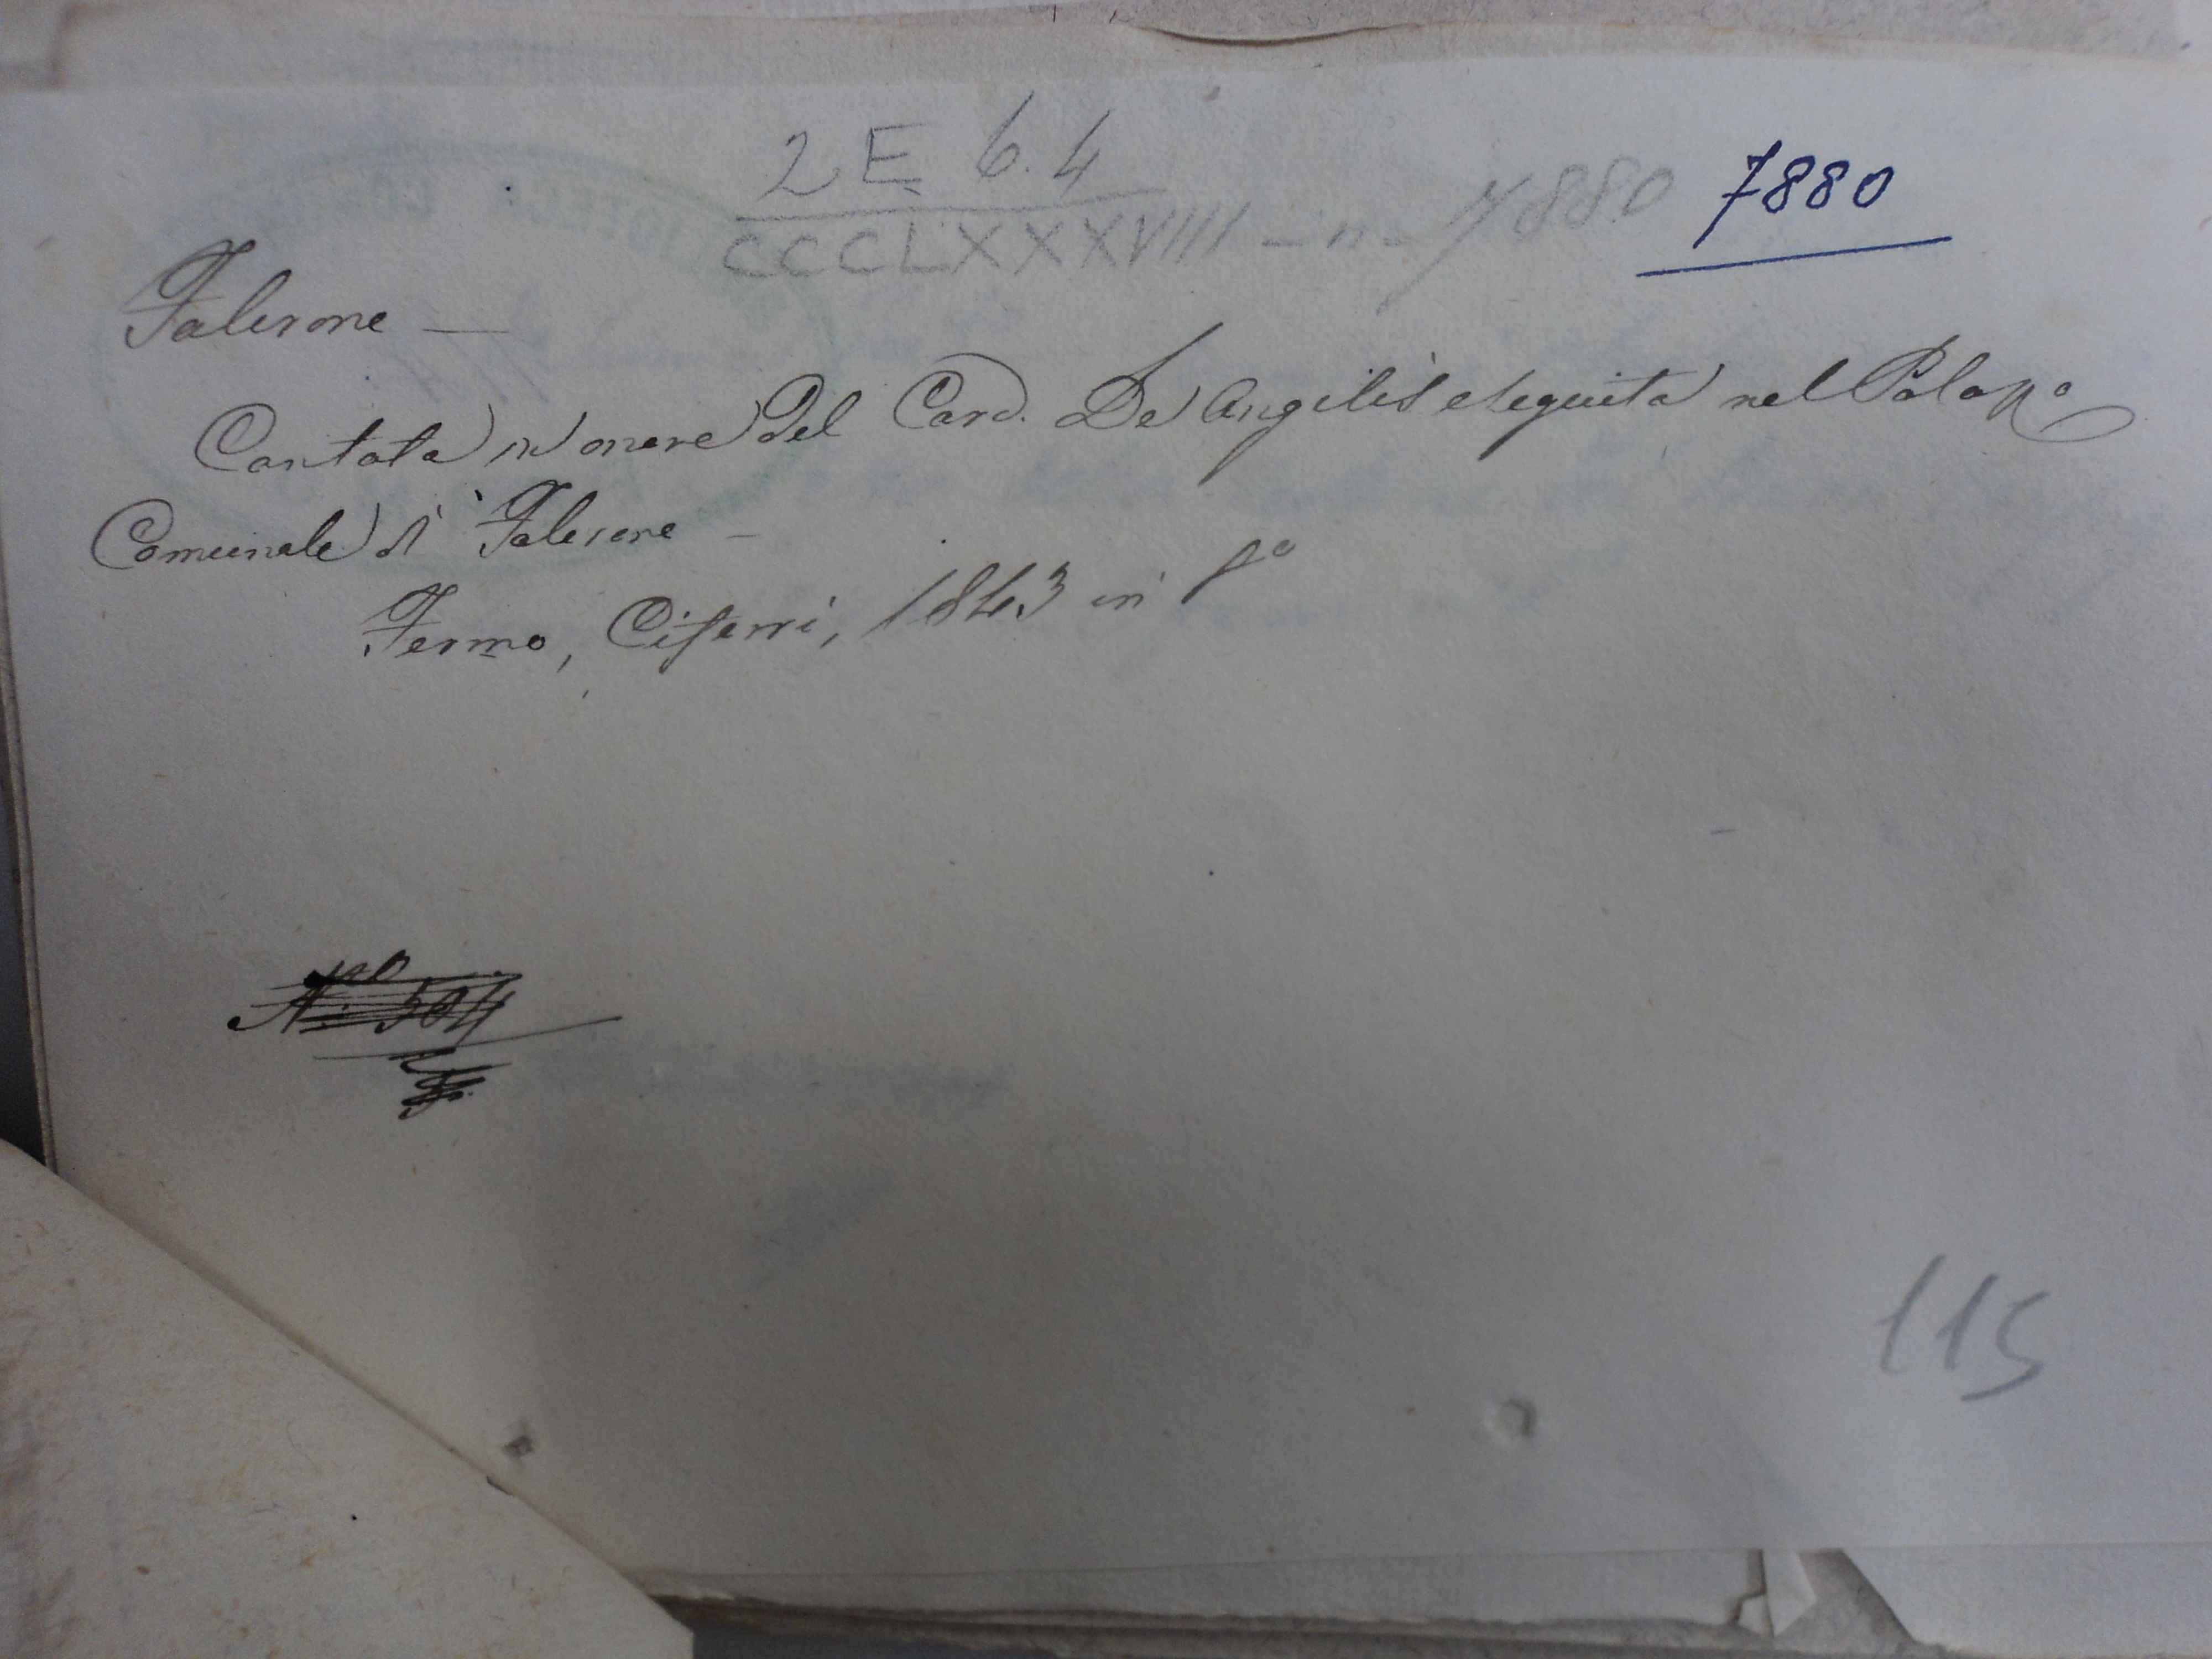 2 E 6.4
CCCLXXXVIII - n - 7880 7880
Falerone —
Cantata in onore del Card. De Angelis eseguita nel Palazzo
Comunale di Falerone —
Fermo, Ciferri, 1843 in f°
N.° 504
115